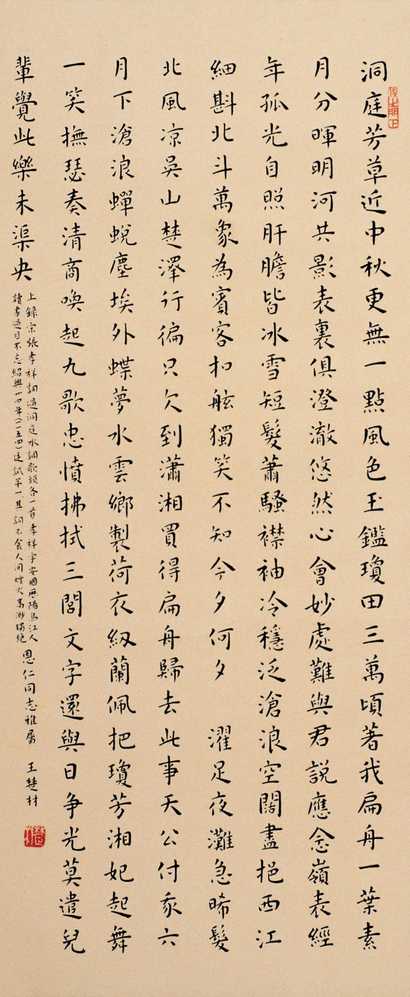 洞庭芳草近中秋更無一點風色玉鑑瓊田三萬頃著我扁舟一葉素
月分暉明河共影表裏俱澄澈悠然心會妙處難與君説應念嶺表經
年孤光自照肝膽皆冰雪短髮蕭騷襟袖冷穩泛滄浪空闊盡挹西江
細斟北斗萬象為賓客扣舷獨笑不知今夕何夕 濯足夜灘急晞髮
北風凉吳山楚澤行徧只欠到瀟湘買得扁舟歸去此事天公付我六
月下滄浪蟬蛻塵埃外蝶夢水雲鄉製荷衣紉蘭佩把瓊芳湘妃起舞
一笑撫瑟奏清商喚起九歌忠憤拂拭三閭文字還與日争光莫遣兒
輩覺此樂未渠央
上錄宋張孝祥詞過洞庭水調歌頭各一首孝祥字安國歷陽烏江人
讀書過目不忘紹興二四年(一一五四)廷試第一其詞不食人間煙火
恩仁同志雅屬 王楚材